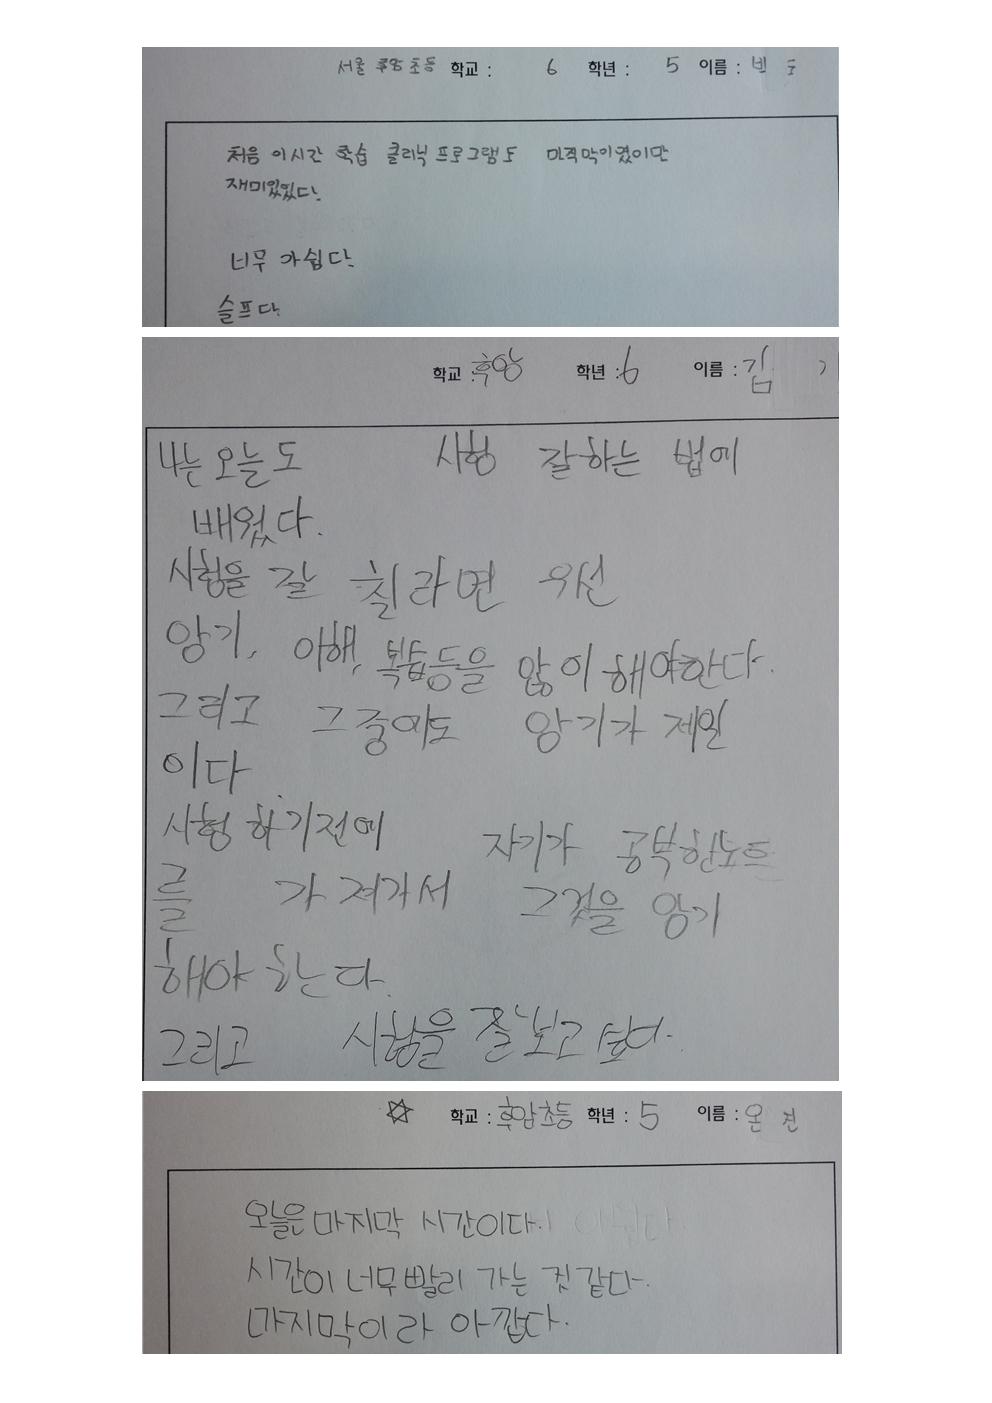 서울 후암초등 학교 : 6 학년 : 5 이름 : 빈
처음 이시간 학습 클리닉 프로그램도 마직막이였이만
재미있있다.
너무 가쉽다.
슬프다.
학교 : 후암 학년 : 6 이름 : 김
나는 오늘도 시험 잘하는 법에
배웠다.
시험을 잘 칠라면 우선
암기, 이해, 복습등을 많이 해야한다.
그리고 그중에도 암기가 제일
이다
시험 하기전에 자기가 공부한노트
를 가져가서 그것을 암기
해야 한다.
그리고 시험을 잘 보고 싶다.
학교 : 후암초등 학년 : 5 이름 : 온 진
오늘은 마지막 시간이다.
시간이 너무 빨리 가는 것 같다.
마지막이라 아깝다.